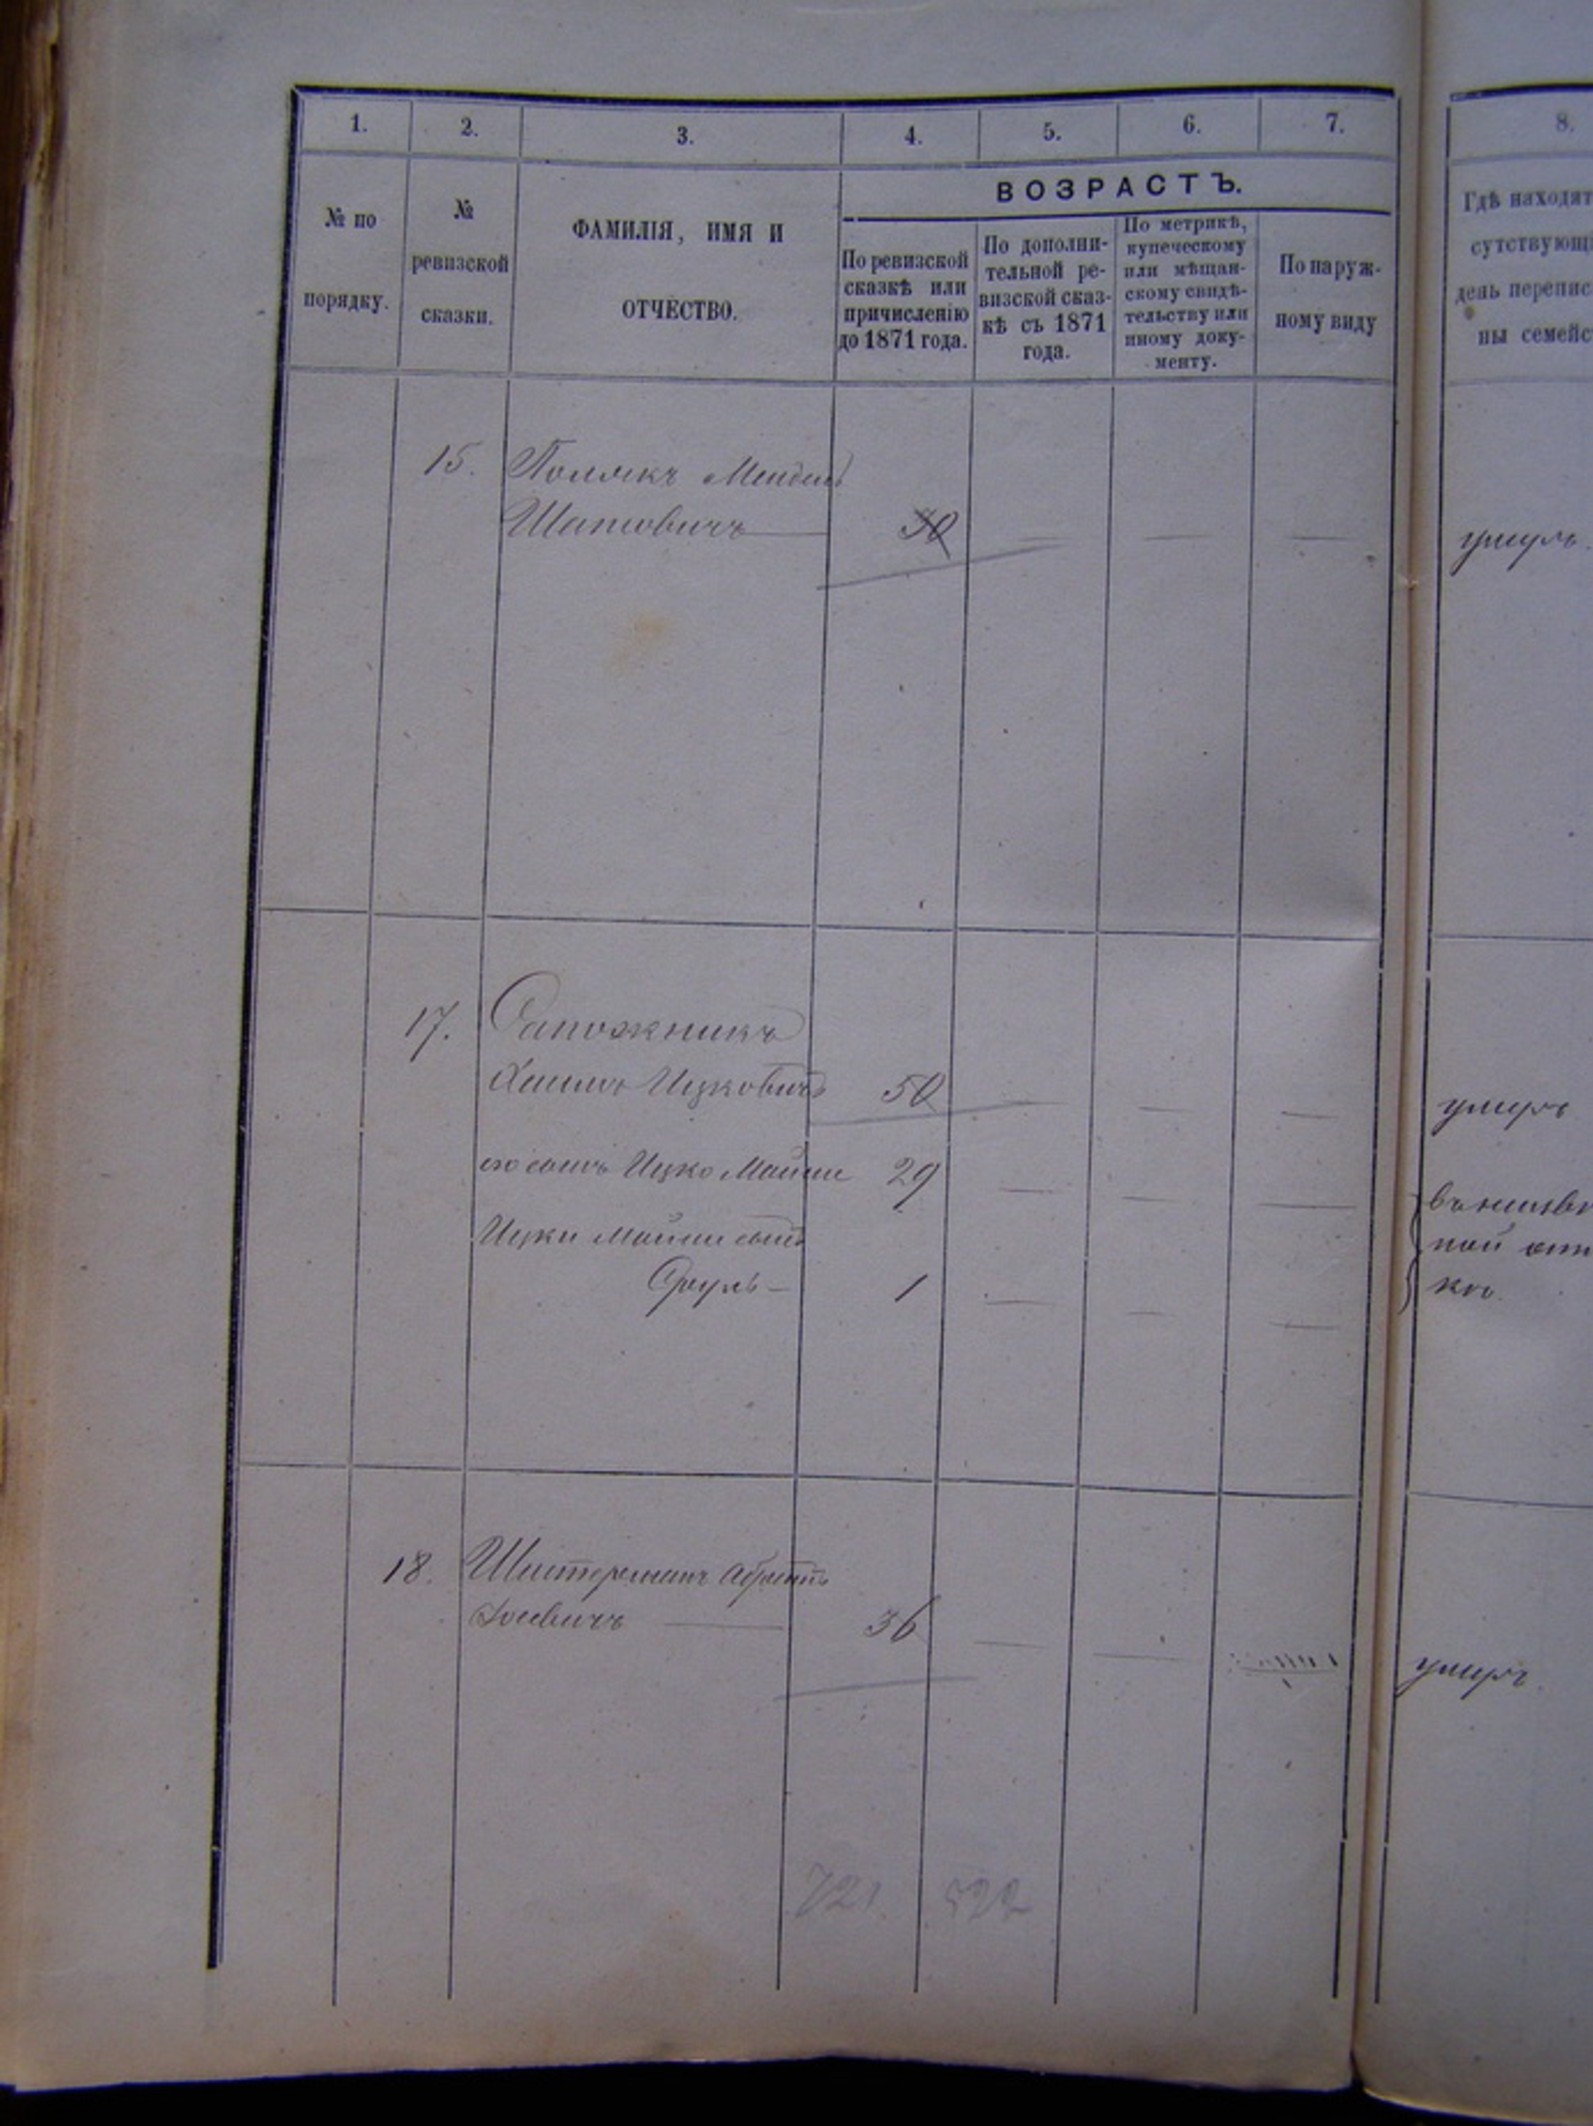 1. 2. 3. 4. 5. 6. 7. 8.
№ по
порядку.
№
ревизской
сказки.
ФАМИЛІЯ, ИМЯ И
ОТЧЕСТВО.
ВОЗРАСТЪ.
По ревизской
сказкѣ или
причисленію
до 1871 года.
По дополни-
тельной ре-
визской сказ-
кѣ съ 1871
года.
По метрикѣ,
купеческому
или мѣщан-
скому свидѣ-
тельству или
иному доку-
менту.
По наруж-
ному виду
Гдѣ находят
сутствующ
день перепис
ны семейс
15. Полякъ Мендель
Шаповичъ 30
умеръ.
17. Сапожникъ
Ицковичъ 50
умеръ
его сынъ Ицко Мойше 29
Ицки Мойши сынъ
Сруль 1
ной
кѣ
18. Шистерманъ
36
умеръ.
721. 522